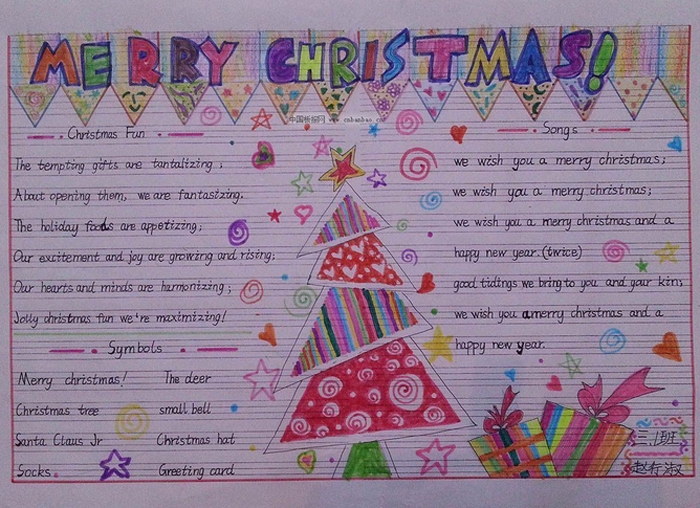 MERRY CHRISTMAS!
中国板报网 www.cnbanbao.cn
Christmas Fun
The tempting gifts are tantalizing ;
About opening them, we are fantasizing.
The holiday foods are appetizing;
Our excitement and joy are growing and rising;
Our hearts and minds are harmonizing ;
Jolly christmas fun we're maximizing!
Symbols
Merry christmas! The deer
Christmas tree small bell
Santa Claus Jr Christmas hat
Socks. Greeting card
Songs
we wish you a merry christmas;
we wish you a merry christmas;
we wish you a merry christmas and a
happy new year.(twice)
good tidings we bring to you and your kin;
we wish you a merry christmas and a
happy new year.
三.1班